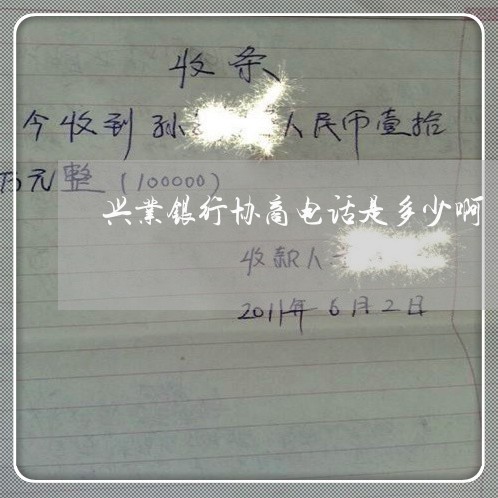 收条
今收到孙 人民币壹拾
万元整(100000)
兴業銀行协商电话是多少啊
收款人
2011年6月2日